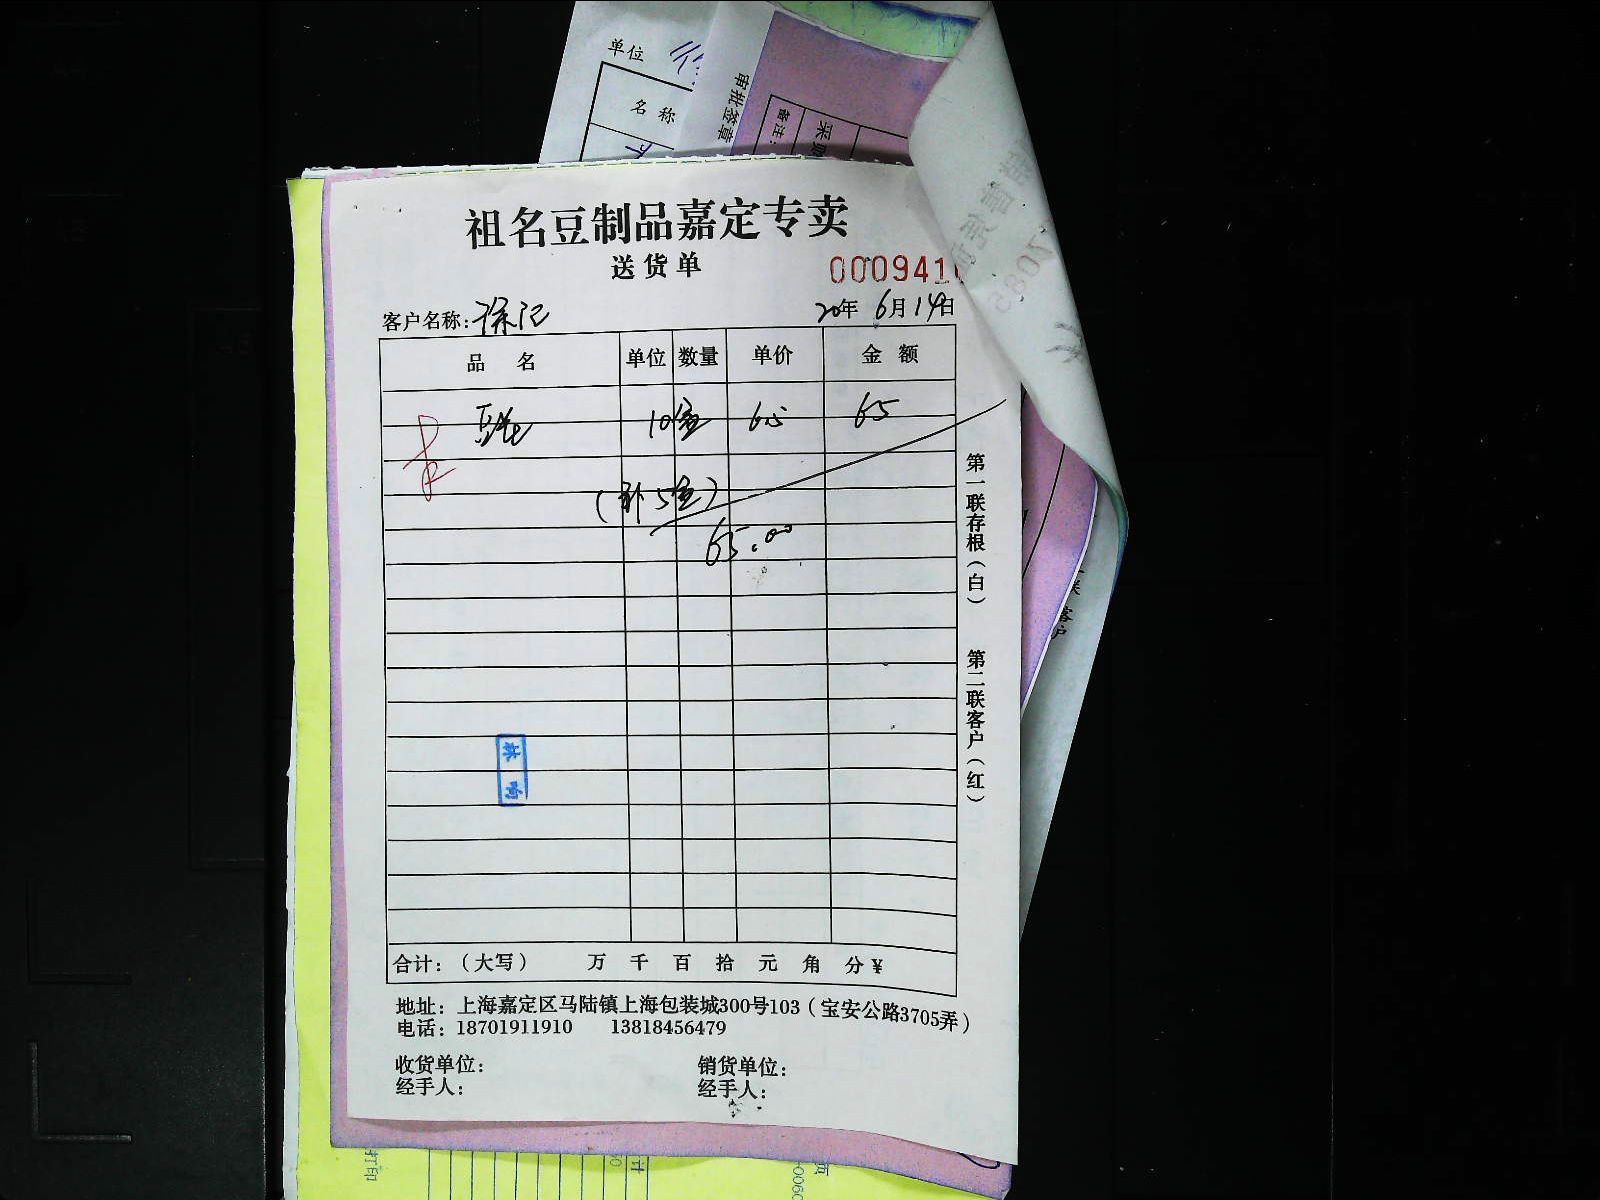 单位
名 称
审批签章
备注:
采购
祖名豆制品嘉定专卖
送货单
000941
客户名称: 徐记
20年 6月14日
品 名 单位 数量 单价 金 额
10盒 6.5 65
(补5盒)
65.00
第一联存根(白) 第二联客户(红)
合计:(大写) 万 千 百 拾 元 角 分 ¥
地址:上海嘉定区马陆镇上海包装城300号103(宝安公路3705弄)
电话:18701911910 13818456479
收货单位: 销货单位:
经手人: 经手人:
联 客户
打印